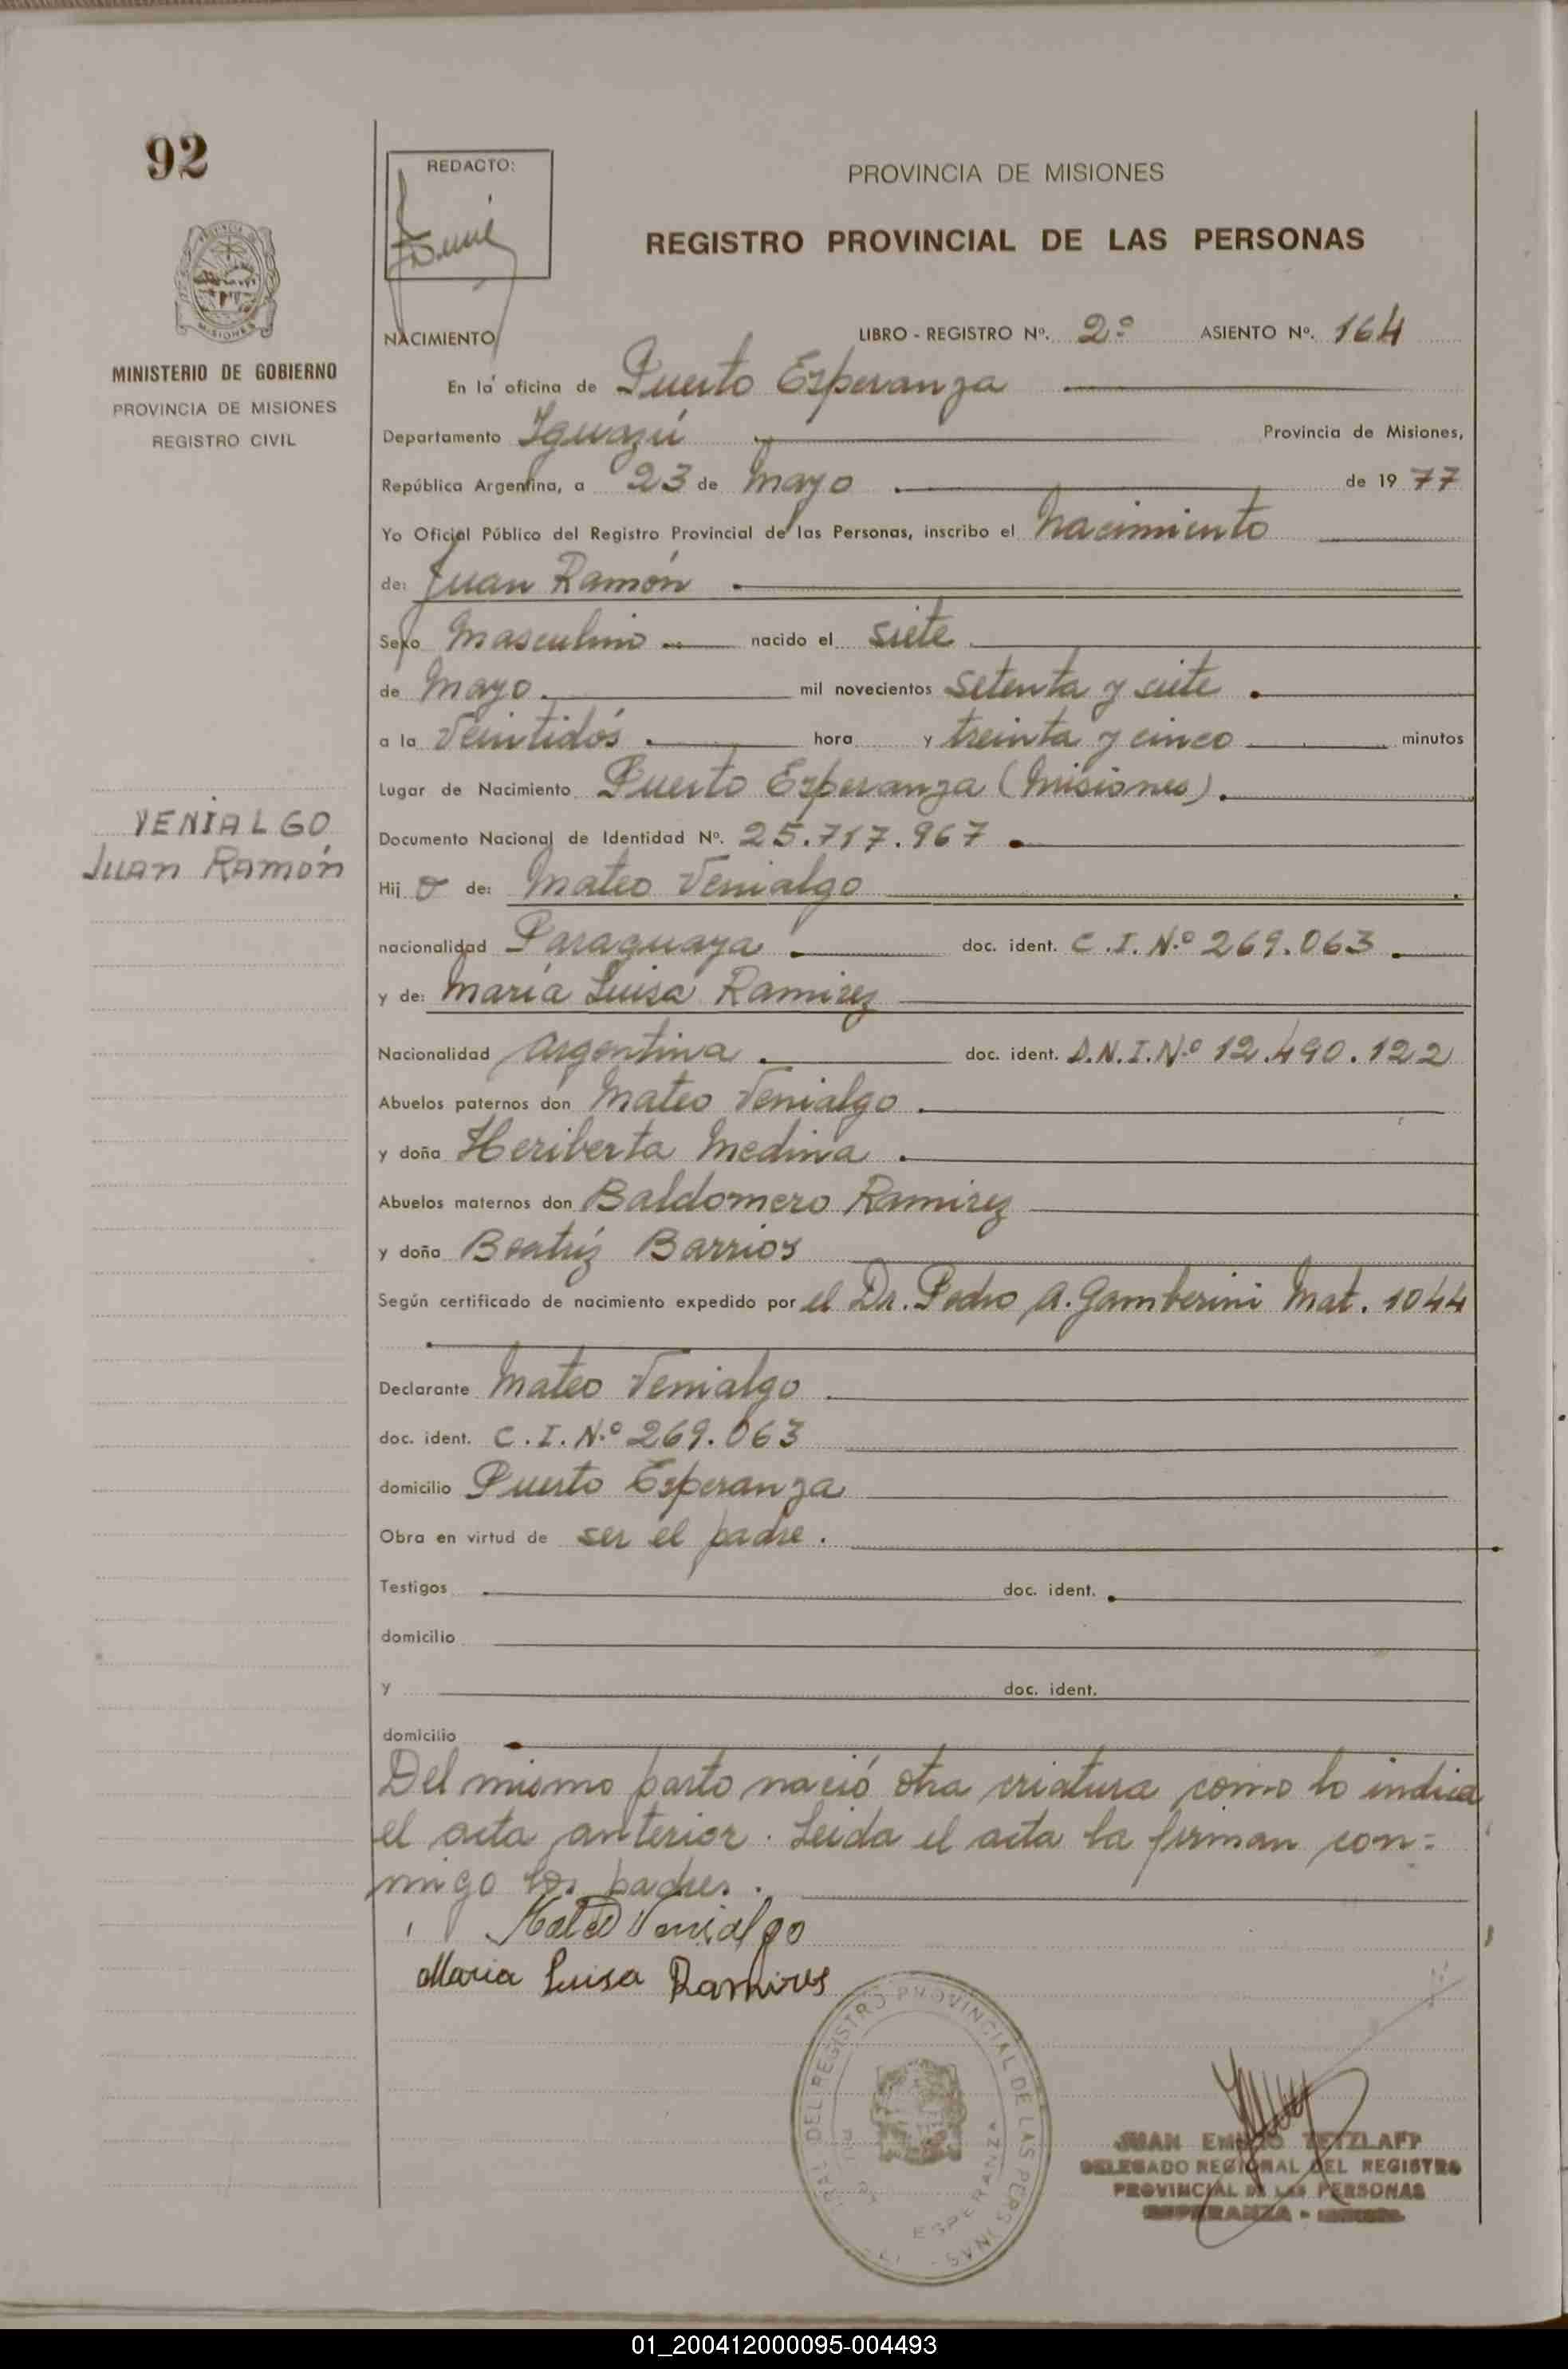 92
REDACTO:
PROVINCIA DE MISIONES
REGISTRO PROVINCIAL DE LAS PERSONAS
MISIONES
MINISTERIO DE GOBIERNO
PROVINCIA DE MISIONES
REGISTRO CIVIL
NACIMIENTO LIBRO - REGISTRO Nº. 2º ASIENTO Nº. 164
En la oficina de Puerto Esperanza
Departamento Iguazú Provincia de Misiones,
República Argentina, a 23 de Mayo de 19 77
Yo Oficial Público del Registro Provincial de las Personas, inscribo el nacimiento
de: Juan Ramón
Sexo Masculino nacido el siete
de Mayo mil novecientos setenta y siete.
a la Veintidós hora y treinta y cinco minutos
Lugar de Nacimiento Puerto Esperanza (Misiones).
VENIALGO
Juan Ramón
Documento Nacional de Identidad Nº. 25.717.967
Hij o de: Mateo Venialgo
nacionalidad Paraguaya doc. ident. C.I.N.º 269.063
y de: María Luisa Ramirez
Nacionalidad argentina doc. ident. D.N.I.N.º 12.490.122
Abuelos paternos don Mateo Venialgo
y doña Heriberta Medina
Abuelos maternos don Baldomero Ramirez
y doña Beatríz Barrios
Según certificado de nacimiento expedido por el Dr. Pedro A. Gamberini Mat. 1044
Declarante Mateo Venialgo
doc. ident. C.I.N.º 269.063
domicilio Puerto Esperanza
Obra en virtud de ser el padre.
Testigos doc. ident.
domicilio
y doc. ident.
domicilio
Del mismo parto nació otra criatura como lo indica
el acta anterior. Leida el acta la firman con=
migo los padres.
Mateo Venialgo
Maria Luisa Ramires
DEL REGISTRO PROVINCIAL DE LAS PERSONAS
ESPERANZA
JUAN EMILIO TETZLAFF
DELEGADO REGIONAL DEL REGISTRO
PROVINCIAL DE LAS PERSONAS
ESPERANZA -
01_200412000095-004493